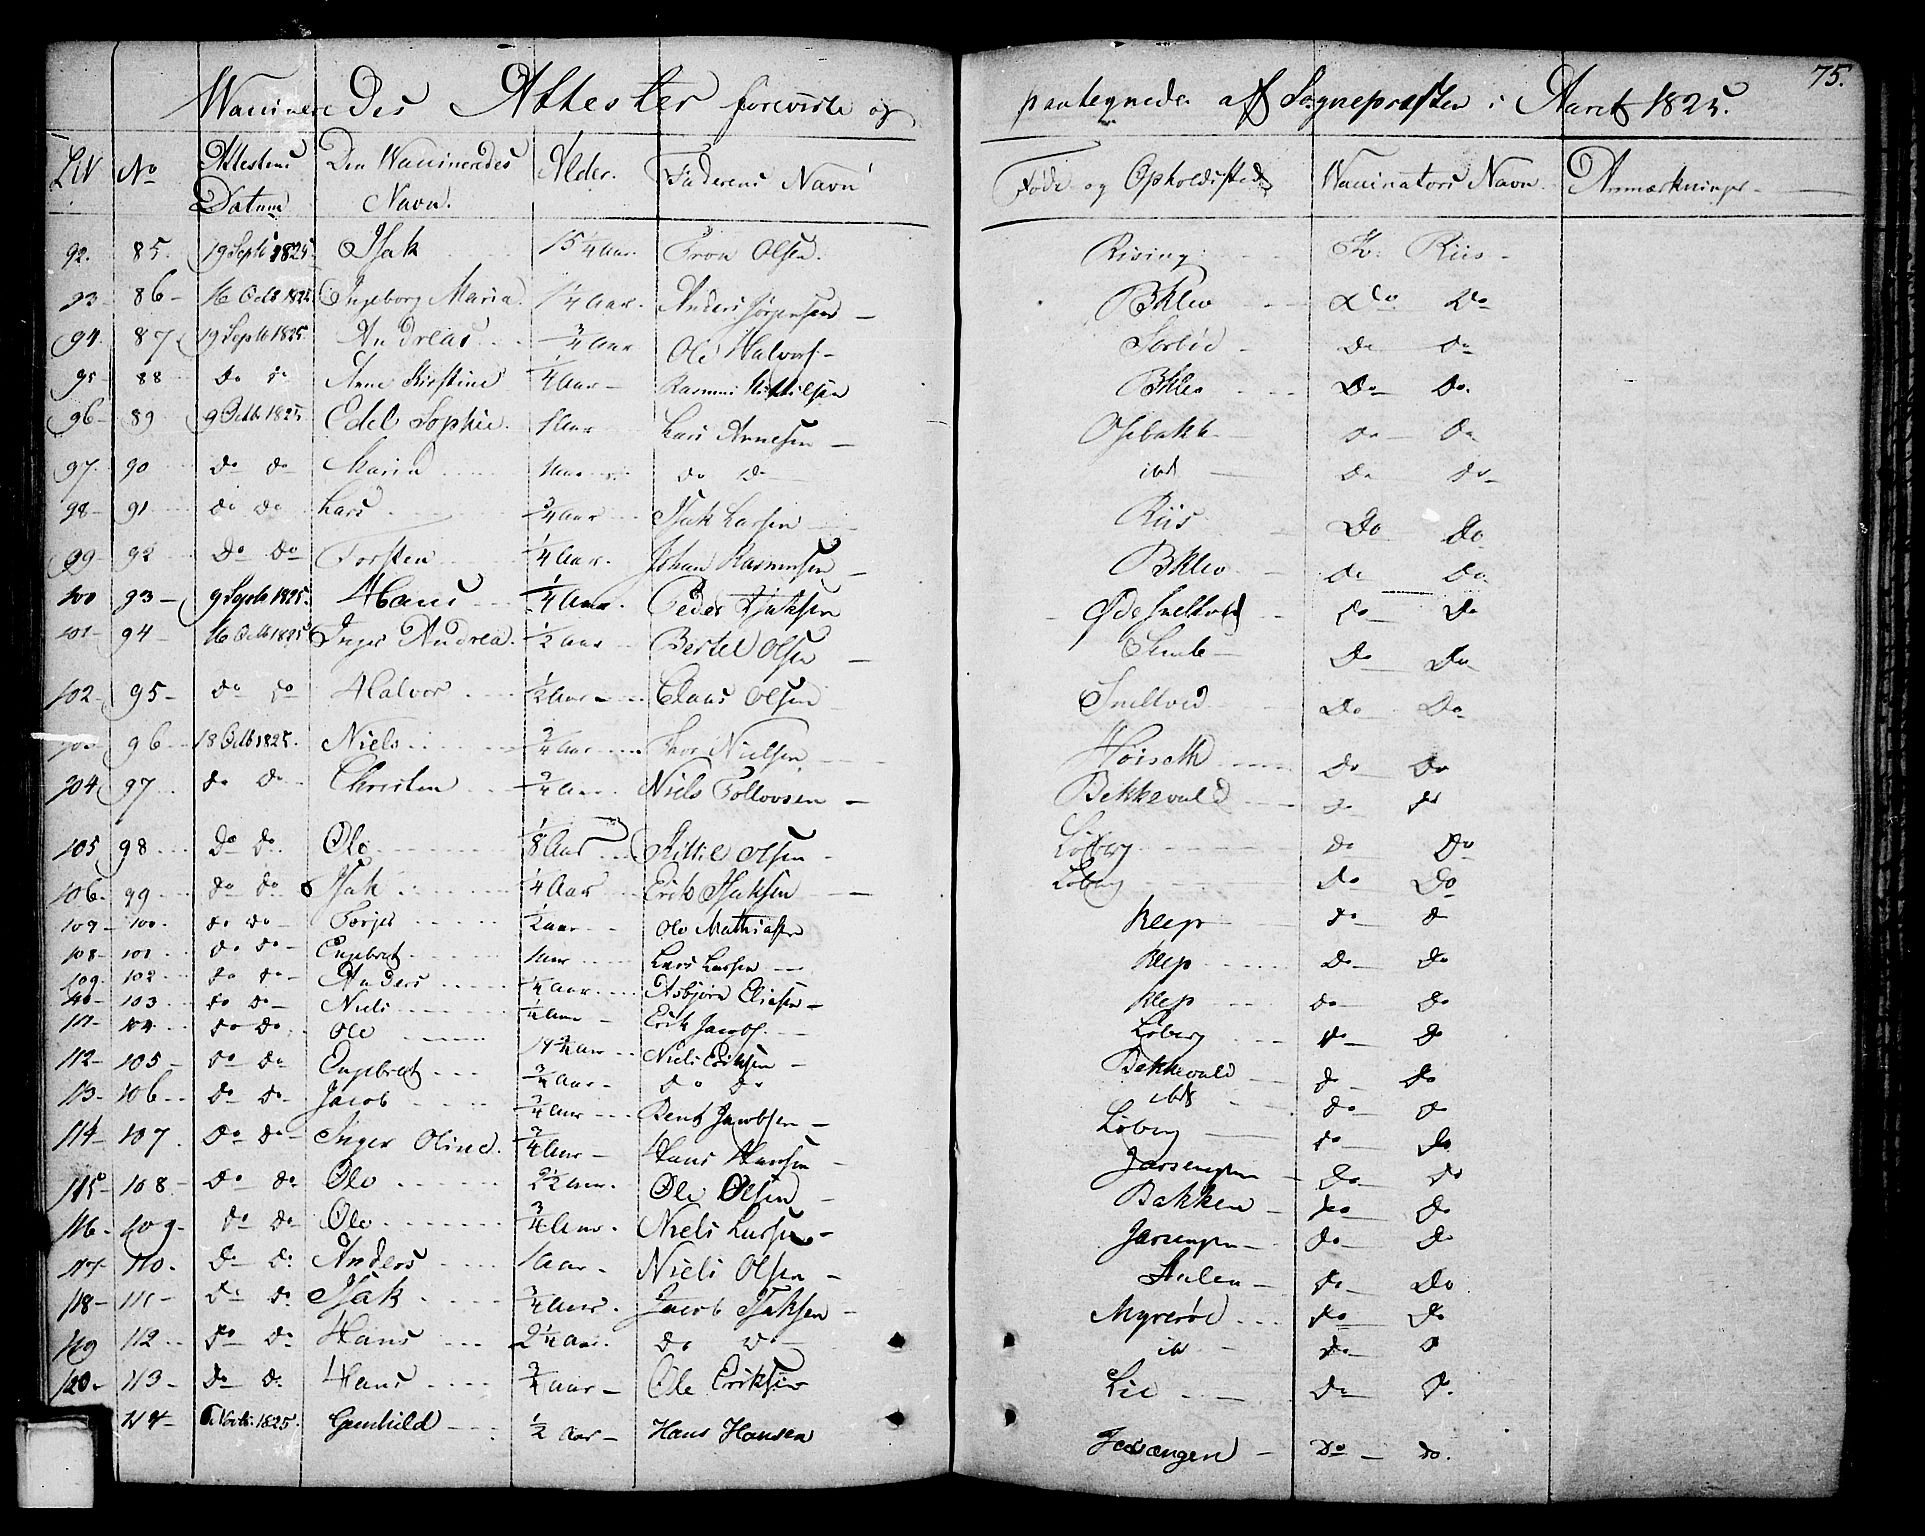 75.
Vaccineredes Attester foreviste og paategnede af Sognepræsten i Aaret 1825.
LN No Attestens Datum Den Vaccineredes Navn. Alder. Faderens Navn Føde og Opholdssted Vaccinators Navn Anmærkninger
92. 85. 19 Septb 1825. Isak 15 1/4 Aar. Tron Olsen. Rising Riis
93 86 16 Octb 1825 Ingeborg Maria 1/4 Aar. Anders Jørgensen Bklev Do Do
94. 87 19 Septb 1825. Andreas 3/4 Aar Ole Halvors. Do Do
95 88 Do Do Anne Kirstine 1/4 Aar Rasmus Kittilsen Bklev Do Do.
96 89 9 Octb 1825 Edel Sophie. 1 Aar Lars Annesen Osebakk Do Do
97. 90 Do Do Maria 1 Aar Do Do ibd Do Do
98 91 Do Do Lars 3/4 Aar Isak Larsen Riis Do Do
99 92 Do Do Torsten 1/4 Aar. Johan Rasmusen Bklev Do Do
100 93 9 Septb 1825. Hans 1/4 Aar. Peder Isaksen Øde Sneltved Do Do
101 94 16 Octb 1825 Inger Andrea. 1/2 Aar Bertel Olsen Do Do
102 95 Do Do Halvor 1/2 Aar Claus Olsen Sneltved Do Do
103 96 18 Octb 1825. Niels 3/4 Aar Thor Nielsen Høiseth Do Do
104 97 Do Do Christen 3/4 Aar Niels Tollovsen Bekkevald Do Do
105 98 Do Do Ole 1/8 Aar Kittil Olsen Løberg Do Do
106 99 Do Do Isak 1/4 Aar Erik Isaksen Løberg Do Do
107 100. Do Do Torjer 1/2 Aar Ole Mathiasen Klep Do Do
108 101 Do Do Engebret 1 Aar Lars Larsen Klep Do Do
109 102 Do Do Anders 1/4 Aar Asbjørn Eliasen Klep Do Do
110 103 Do Do Niels 1/2 Aar Erik Jacobs. Løberg Do Do
111 104 Do Do Ole Niels Eriksen Bekkevald Do Do
112 105 Do Do Engebret 3/4 Aar Do Do ibd Do Do
113 106 Do Do Jacob 3/4 Aar Bent Jacobsen Løberg Do Do
114 107. Do Do Inger Oline. 3/4 Aar Hans Hansen Jarsengen Do Do
115 108 Do Do Ole 2 1/2 Aar. Ole Olsen Bakken Do Do
116 109 Do Do Ole 3/4 Aar. Niels Larsen Jarsengen Do Do
117 110. Do Do Anders 1 Aar Niels Olsen Do Do
118 111 Do Do Isak 3/4 Aar. Jacob Isaksen Myrerød Do Do
119 112 Do Do Hans 2 1/4 Aar. Do Do ibd Do Do
120 113 Do Do Hans 3/4 Aar Ole Eriksen Lie Do Do
114 1825. Gunhild 1/2 Aar Hans Hansen Do do.